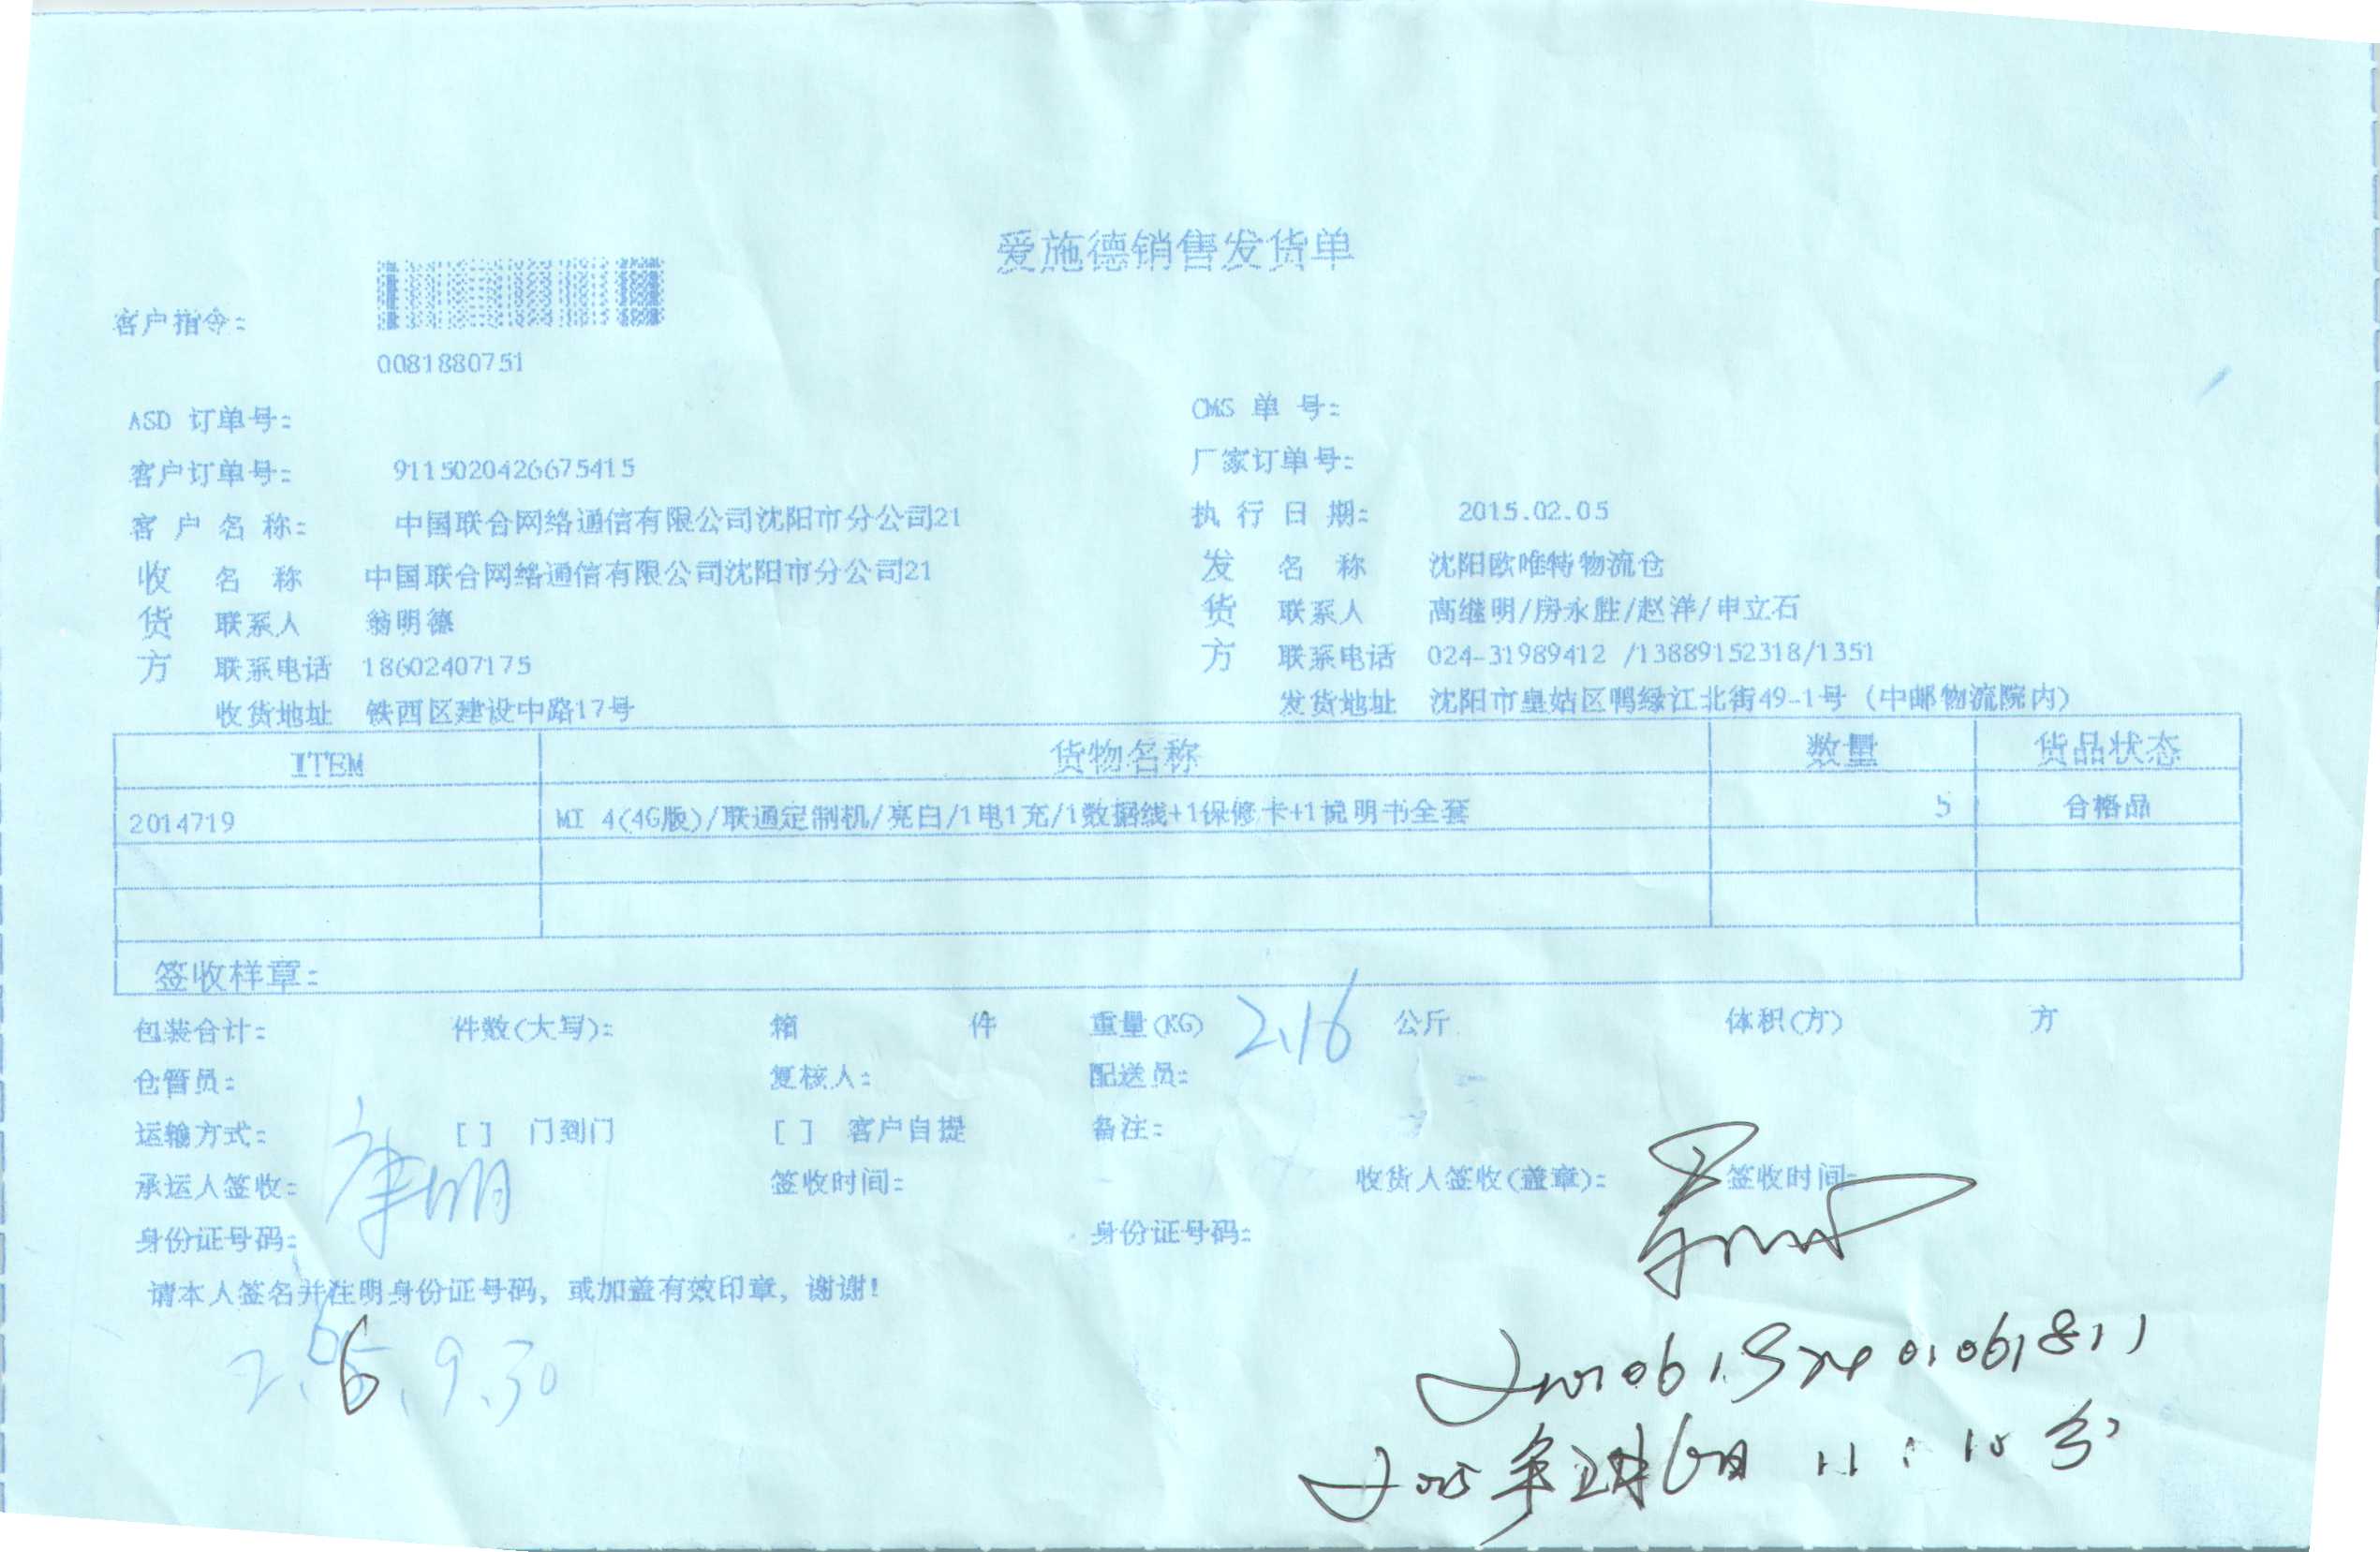 爱施德销售发货单
客户指令:
0081880751
ASD 订单号: CMS 单 号:
客户订单号: 9115020426675415 厂家订单号:
客 户 名 称: 中国联合网络通信有限公司沈阳市分公司21 执 行 日 期: 2015.02.05
收 名 称 中国联合网络通信有限公司沈阳市分公司21 发 名 称 沈阳欧唯特物流仓
货 联系人 翁明德 货 联系人 高继明/房永胜/赵洋/申立石
方 联系电话 18602407175 方 联系电话 024-31989412 /13889152318/1351
收货地址 铁西区建设中路17号 发货地址 沈阳市皇姑区鸭绿江北街49-1号 (中邮物流院内)
ITEM 货物名称 数量 货品状态
2014719 MI 4(4G版)/联通定制机/亮白/1电1充/1数据线+1保修卡+1说明书全套 5 合格品
签收样章:
包装合计: 件数(大写): 箱 件 重量(KG) 2.16 公斤 体积(方) 方
仓管员: 复核人: 配送员:
运输方式: [ ] 门到门 [ ] 客户自提 备注:
承运人签收: 签收时间: 收货人签收(盖章): 签收时间:
身份证号码: 身份证号码:
请本人签名并注明身份证号码，或加盖有效印章，谢谢!